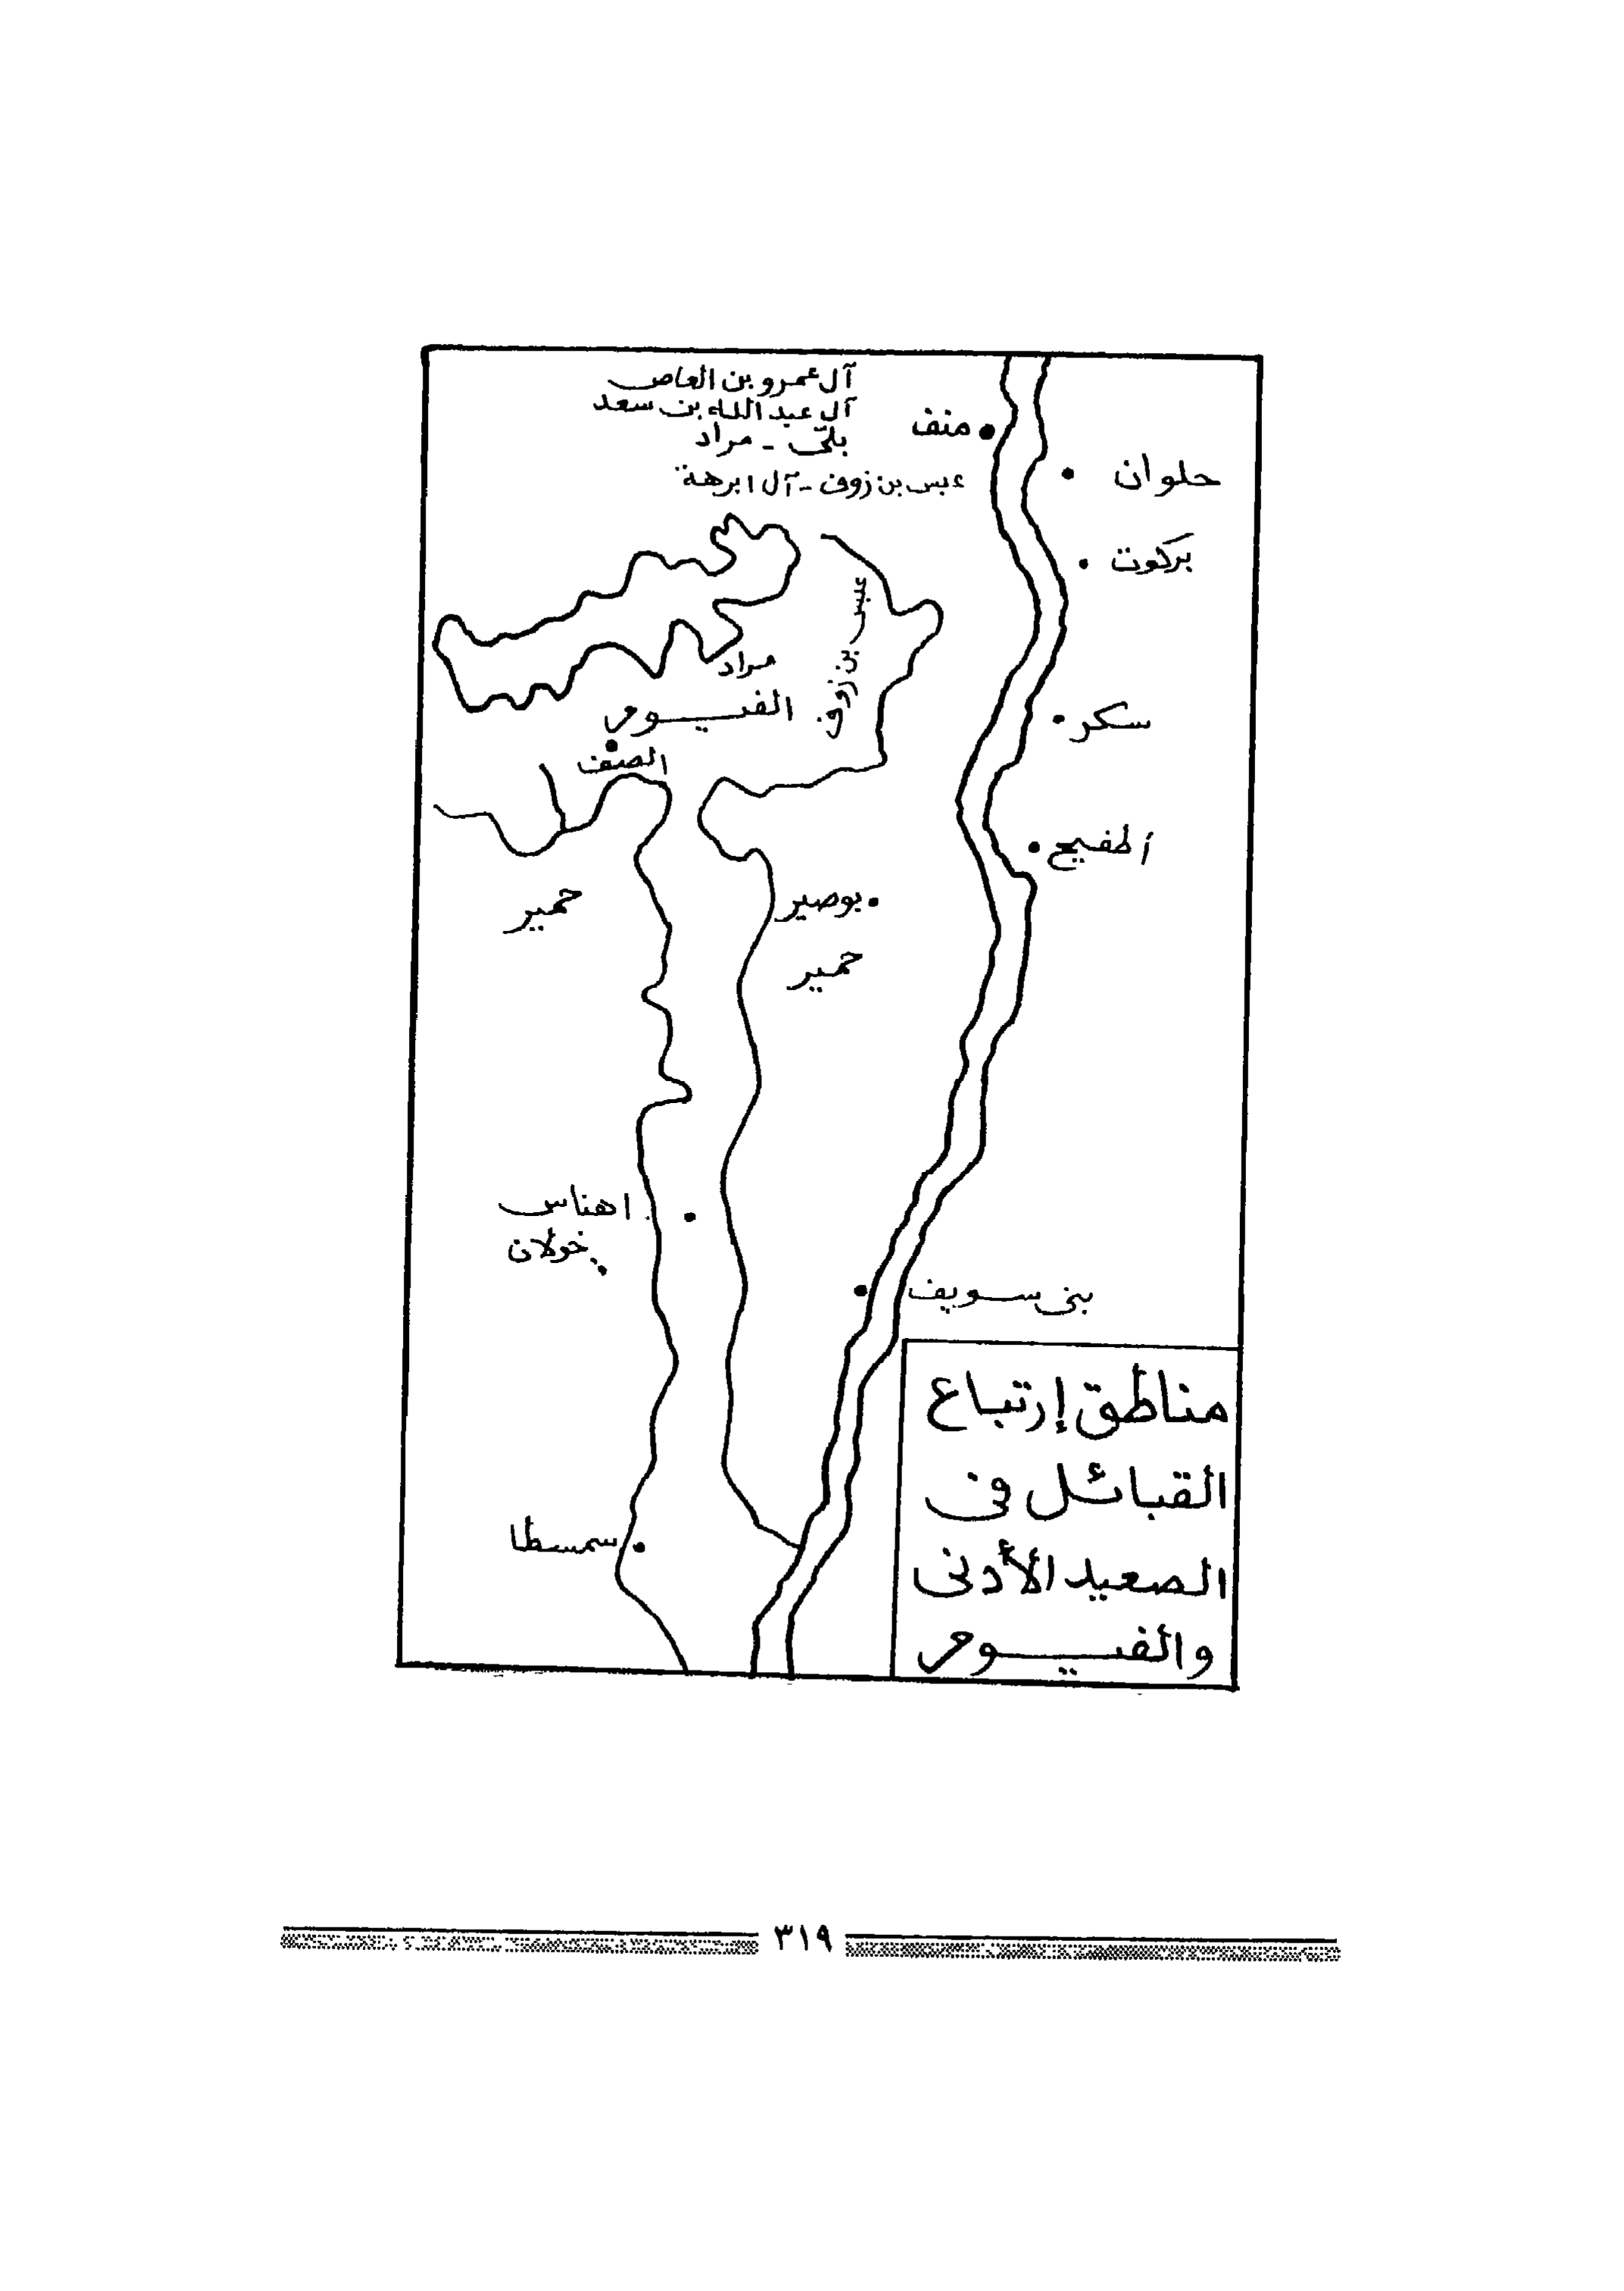 آل عمرو بن العاص
آل عبد الله بن سعد
بلىّ - مراد
عبس بن زوف - آل ابرهة
منف
حلوان
بركوت
عبس بن زوف
مراد
الفيوم
سكر
الصنف
أطفيح
حمير
بوصير
حمير
اهناس
خولان
بنى سويف
سمسطا
مناطق إرتباع
القبائل فى
الصعيد الأدنى
والفيوم
٣١٩